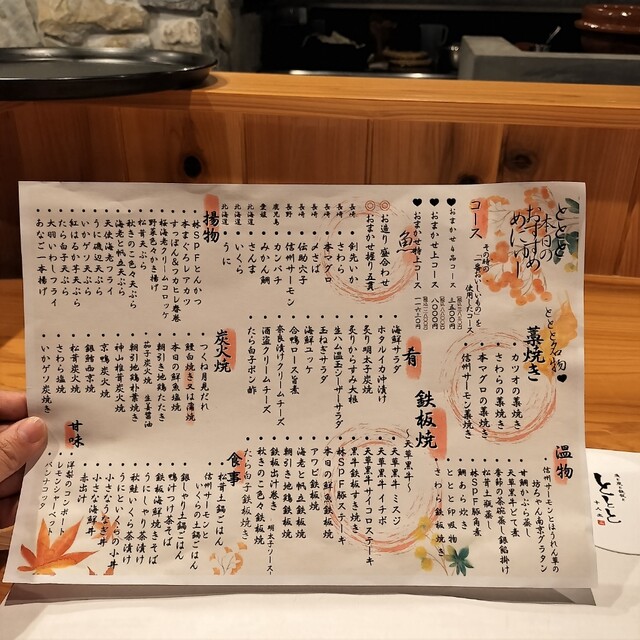 ととと
本日の
おすすめ
めにゅー
コース
その時の「一番おいしいもの」を
使用したコース
♥おまかせ8品コース
♥おまかせ上コース
八〇〇〇円
♥おまかせ特上コース
魚
◎お造り盛合わせ
◎おまかせ握り五貫
長崎 剣先いか
長崎 さわら
長崎 本マグロ
長崎 〆さば
長崎 伝助穴子
長野 信州サーモン
鹿児島 カンパチ
愛媛 みかん鯛
北海道 いくら
北海道 うに
揚物
林SPFとんかつ
本まぐろレアカツ
すっぽん&フカヒレ春巻
桜海老クリームコロッケ
野菜色々かき揚げ
松茸天ぷら
秋きのこ色々天ぷら
海老と帆立天ぷら
天使海老フライ
うに磯辺天ぷら
いかゲソ天ぷら
紅はるか芋天ぷら
たら白子天ぷら
大羽いわしフライ
あなご一本揚げ
ととと名物♥
藁焼き
カツオの藁焼き
さわらの藁焼き
本マグロの藁焼き
信州サーモン藁焼き
肴
海鮮サラダ
ホタルイカ沖漬け
炙り明太子炭焼
炙りからすみ大根
生ハム温玉シーザーサラダ
玉ねぎサラダ
海鮮ユッケ
合鴨ロース旨煮
奈良漬クリームチーズ
酒盗クリームチーズ
たら白子ポン酢
炭火焼
つくね月見だれ
鰻白焼き又は蒲焼
本日の鮮魚塩焼
朝引き地鶏たたき
茄子炭火焼 生姜醤油
朝引き地鶏朴葉焼き
神山椎茸炭火焼
京鴨炭火焼
銀鱈西京焼
松茸炭火焼
さわら塩焼
いかゲソ炭焼き
温物
信州サーモンとほうれん草の
坊ちゃん南京グラタン
甘鯛かぶら蒸し
天草黒牛どて煮
季節の茶碗蒸し銀餡掛け
松茸土瓶蒸し
林SPF豚角煮
鯛あら炊き
ととと卵吸物
さわら鉄板焼き
鉄板焼
~天草黒牛~
天草黒毛牛 ミスジ
天草黒毛牛 イチボ
天草黒牛サイコロステーキ
黒牛鉄板すき焼き
林SPF豚ステーキ
本日の鮮魚鉄板焼
アワビ鉄板焼
海老と帆立鉄板焼
朝引き地鶏鉄板焼
秋きのこ色々鉄板焼
鉄板出汁巻き 明太子ソース
たら白子鉄板焼き
食事
松茸土鍋ごはん
信州サーモンと
いくらの土鍋ごはん
銀しゃり土鍋ごはん
鴨汁つけ茶そば
鉄板海鮮焼きそば
うにしゃり茶漬け
秋鮭いくら茶漬け
うにといくらの小丼
小さなうなぎ丼
小さな海鮮丼
赤出汁
甘味
洋なしのコンポート
レモンシャーベット
パンナコッタ
ととと